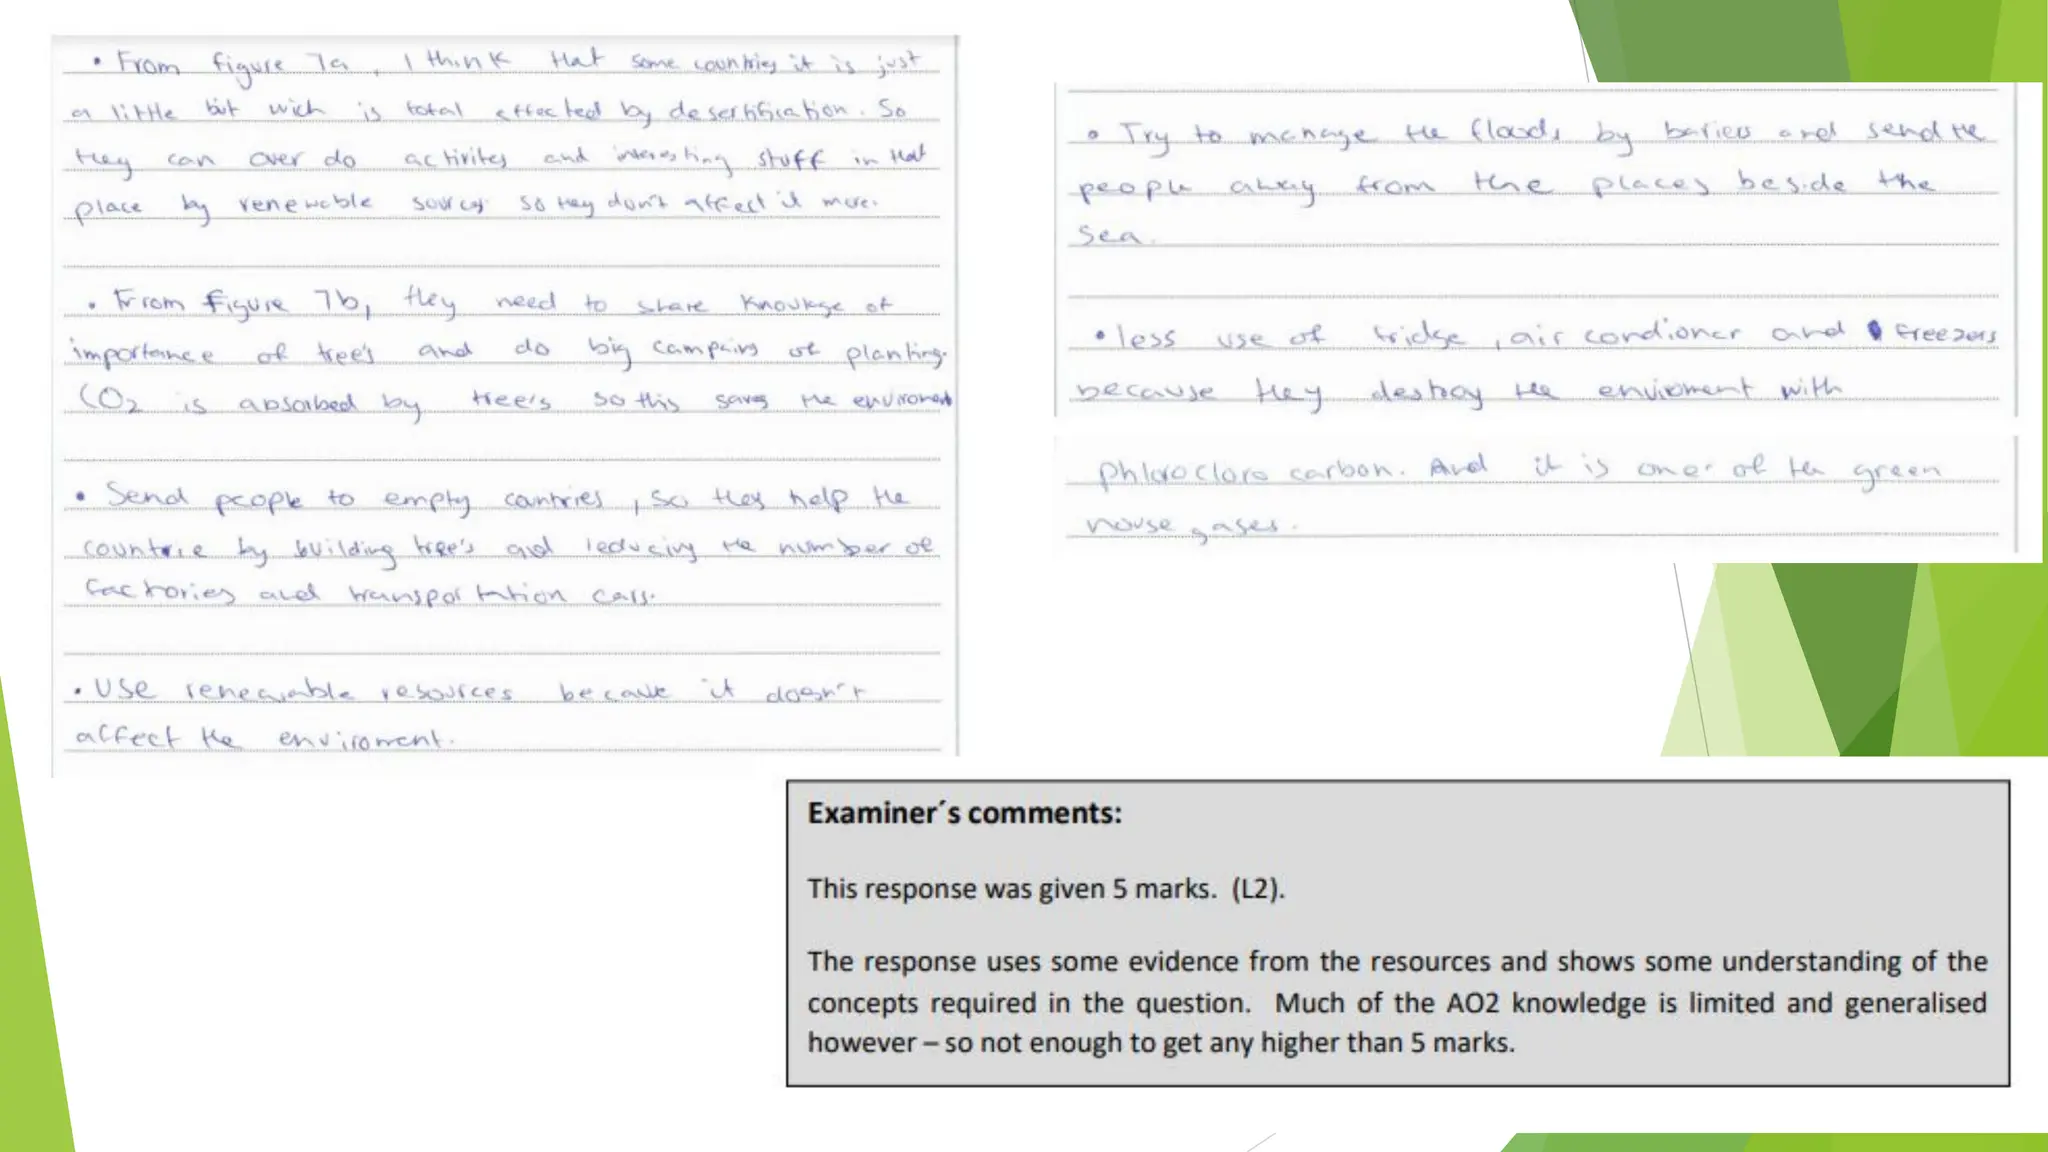 • From figure 7a, I think that some countries it is just
a little but wich is total effected by desertification. So
they can over do activites and interesting stuff in that
place by renewable sources so they don't affect it more.
• From Figure 7b, they need to share knowlege of
importance of tree's and do big campains of planting.
CO2 is absorbed by tree's so this saves the enviroment
• Send people to empty countries, so they help the
countrie by building tree's and reducing the number of
factories and transportation cars.
• Use renewable resources because it doesn't
affect the enviroment.
• Try to manage the floods by bariers and send the
people away from the places beside the
sea.
• less use of fridge, air condioner and freezers
because they destroy the enviroment with
phlorocloro carbon. And it is one of the green
house gases.
Examiner´s comments:
This response was given 5 marks. (L2).
The response uses some evidence from the resources and shows some understanding of the
concepts required in the question. Much of the AO2 knowledge is limited and generalised
however – so not enough to get any higher than 5 marks.